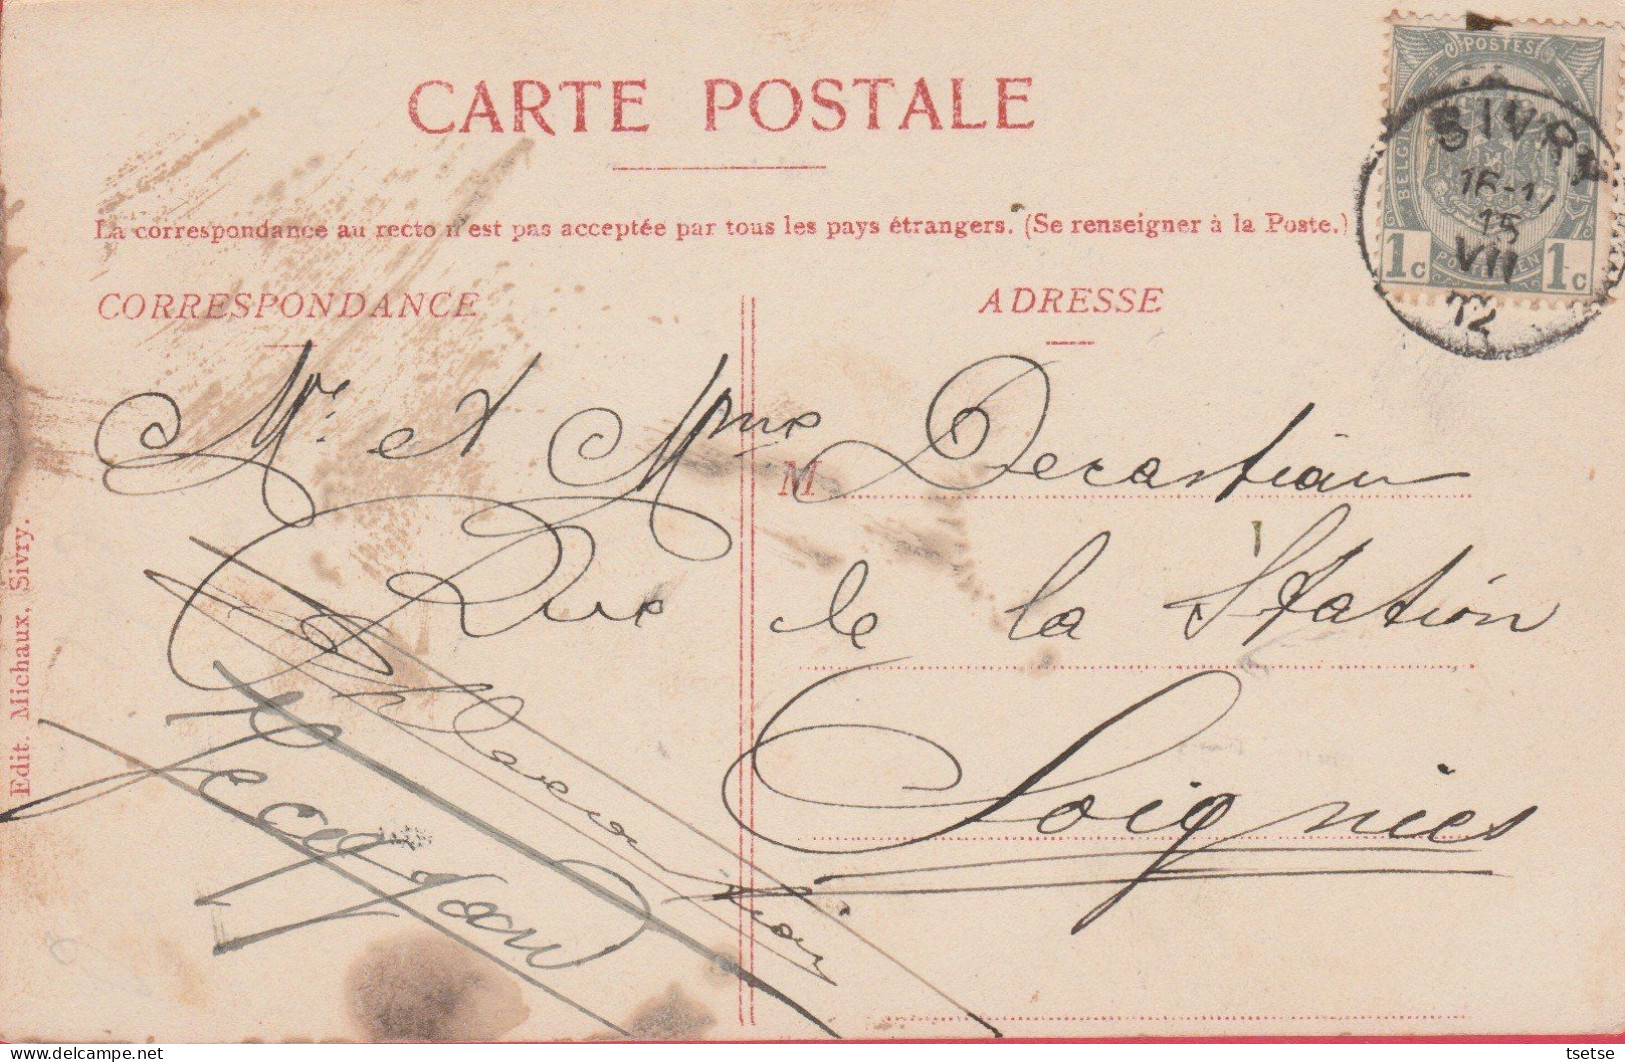 CARTE POSTALE
La correspondance au recto n'est pas acceptée par tous les pays étrangers. (Se renseigner à la Poste.)
CORRESPONDANCE
ADRESSE
POSTES
BELGIQ
1c 1c
SIVRY
15
VII
12
Mr et Mme Decastiau
M
Rue de la Station
Soignies
Edit. Michaux, Sivry.
delcampe.net
tsetse